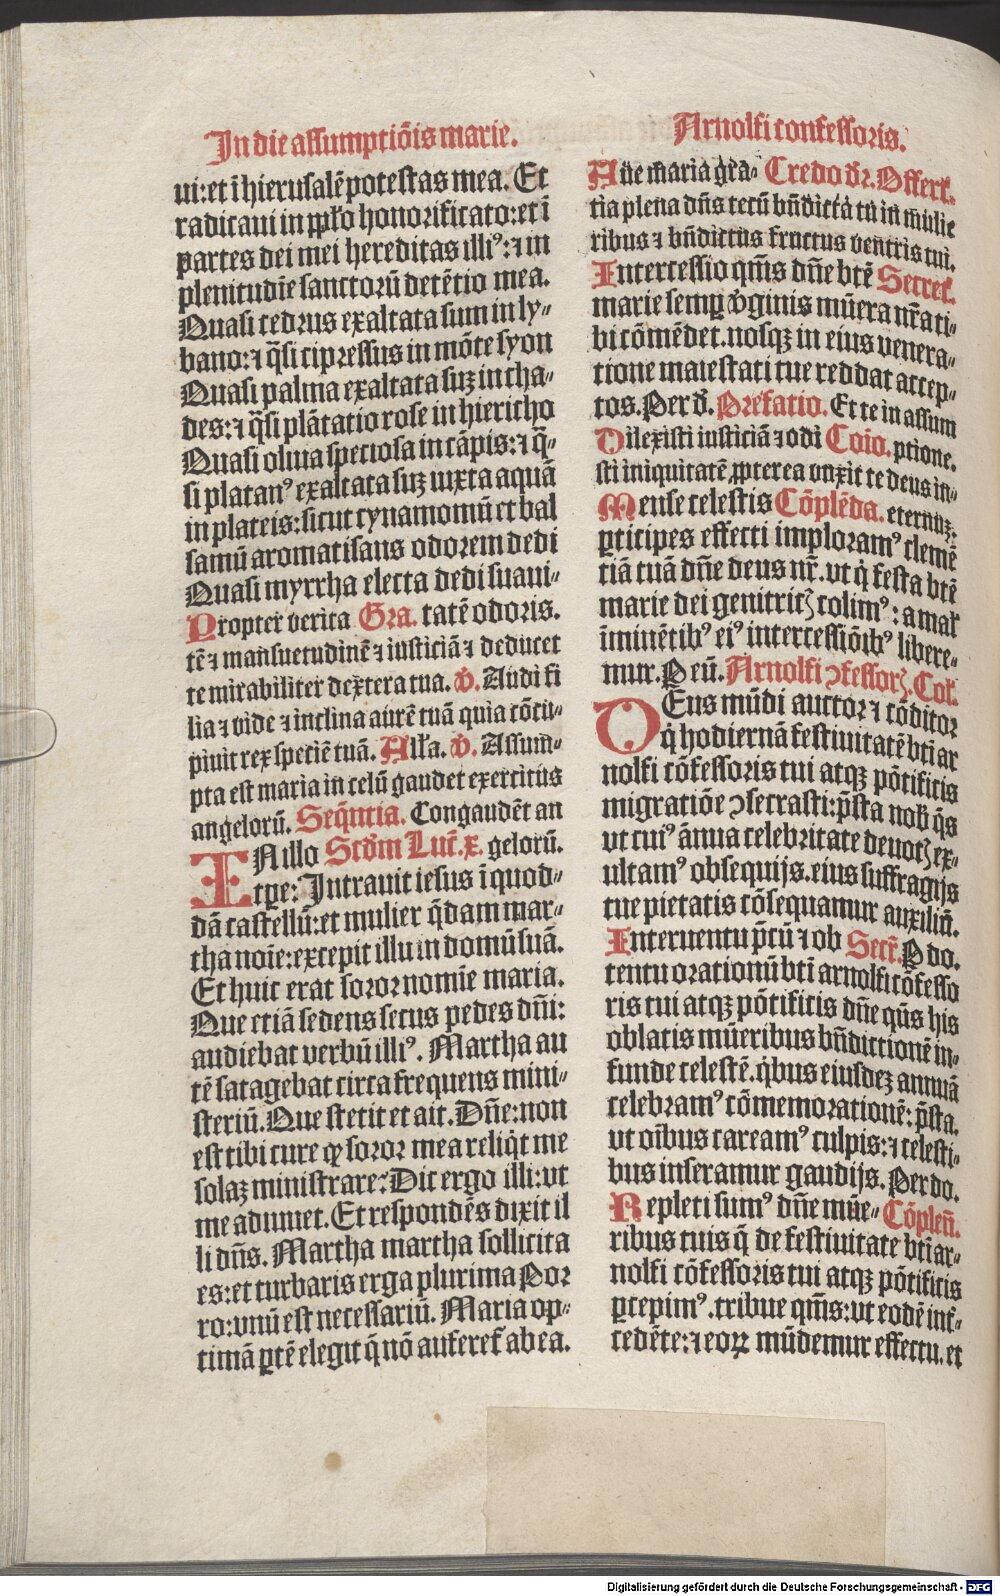 In die assumptiōis marie.
ui:et ī hierusalē potestas mea. Et
radicaui in pp̄lo honorificato:et ī
partes dei mei hereditas illiꝰ:⁊ in
plenitudīe sanctorū detētio mea.
Quasi cedrus exaltata sum in ly⸗
bano:⁊ q̄si cipressus in mōte syon
Quasi palma exaltata suꝫ in cha⸗
des:⁊ q̄si plātatio rose in hiericho
Quasi oliua speciosa in cāpis:⁊ q̄⸗
si platanꝰ exaltata suꝫ iuxta aquā
in plateis:sicut cynamomū et bal
samū aromatisans odorem dedi
Quasi myrrha electa dedi suaui⸗
Propter verita Gra. tatē odoris.
tē ⁊ mansuetudinē ⁊ iusticiā ⁊ deducet
te mirabiliter dextera tua. ℣. Audi fi
lia ⁊ vide ⁊ inclina aurē tuā quia cōcu⸗
piuit rex speciē tuā. All'a. ℣. Assum⸗
pta est maria in celū gaudet exercitus
angelorū. Seq̄ntia. Congaudēt an
IN illo Scd̄m Luc̄.x. gelorū.
tꝑe: Intrauit iesus ī quod⸗
dā castellū:et mulier q̄dam mar⸗
tha noīe:excepit illu in domū suā.
Et huic erat soror nomīe maria.
Que etiā sedens secus pedes dn̄i:
audiebat verbū illiꝰ. Martha au
tē satagebat circa frequens mini⸗
steriū. Que stetit et ait. Dn̄e:non
est tibi cure ꝙ soror mea reliq̇t me
solaꝫ ministrare: Dic ergo illi:vt
me adiuuet. Et respondēs dixit il
li dn̄s. Martha martha sollicita
es:et turbaris erga plurima Por
ro:vnū est necessariū. Maria op⸗
timā ꝑtē elegit q̄ nō auferet̄ ab ea.
Arnolfi confessoris.
Aue maria gra⸗ Credo d'r. Offert̄.
tia plena dn̄s tecū bn̄dicta tu in mulie
ribus ⁊ bn̄dictus fructus ventris tui.
Intercessio qm̄s dn̄e btē Secret̄.
marie semꝑ v̓ginis mūera nr̄a ti⸗
bi cōmēdet.nosqꝫ in eius venera⸗
tione maiestati tue reddat accep⸗
tos. Per d'. Prefatio. Et te in assum
Dilexisti iusticiā ⁊ odi Coīo. ptione.
sti iniquitatē ꝓpterea vnxit te deus in⸗
Mense celestis Cōplēda. eternuꝫ.
ꝑticipes effecti imploramꝰ clemē
tiā tuā dn̄e deus nr̄.vt q̇ festa btē
marie dei genitricꝭ colimꝰ:a mal'
īminētibꝰ eiꝰ intercessiōibꝰ libere⸗
mur. P eū. Arnolfi ꝯfessorꝭ. Col'.
DEus mūdi auctor ⁊ cōditor
q̇ hodiernā festiuitatē bti ar
nolfi cōfessoris tui atqꝫ pōtificis
migratiōe ꝯsecrasti:p̄sta nob̄ q̄s
vt cuiꝰ ānua celebritate deuotꝭ ex⸗
ultamꝰ obsequijs.eius suffragijs
tue pietatis cōsequamur auxiliū.
Interuentu p̄cū ⁊ ob Secr̄. P do.
tentu orationū bti arnolfi cōfesso
ris tui atqꝫ pōtificis dn̄e qūs his
oblatis mūeribus bn̄dictionē in⸗
funde celestē.q̇bus eiusdeꝫ annuā
celebramꝰ cōmemorationē:p̄sta.
vt oībus careamꝰ culpis:⁊ celesti⸗
bus inseramur gaudijs. Per do.
Repleti sumꝰ dn̄e mūe⸗ Cōplen̄.
ribus tuis q̄ de festiuitate bti ar⸗
nolfi cōfessoris tui atqꝫ pōtificis
ꝑcepimꝰ.tribue qm̄s:vt eodē int̄⸗
cedēte:⁊ eoꝝ mūdemur effectu.et
Digitalisierung gefördert durch die Deutsche Forschungsgemeinschaft - DFG